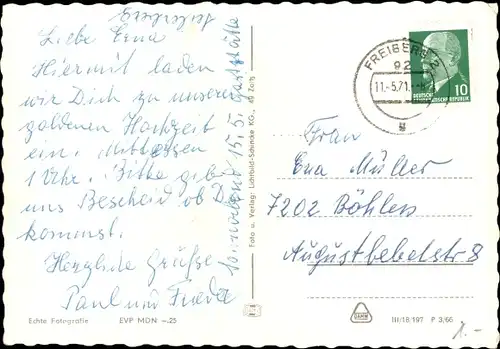 Liebe Erna
Hiermit laden
wir Dich zu unserer
goldenen Hochzeit
ein. Mittagessen
1 Uhr. Bitte gebe
uns Bescheid ob Du
kommst.
Herzliche Grüße
Paul und Frieda
Sonnabend 15.5. Gaststätte
Echte Fotografie EVP MDN -.25
Foto u. Verlag: Lichtbild-Schincke KG.
FREIBERG
92
11.-5.71.-
DEUTSCHE
DEMOKRATISCHE REPUBLIK
10
Frau
Erna Müller
7202 Böhlen
Augustbebelstr 8
DAMW
III/18/197 P 3/66
1.-